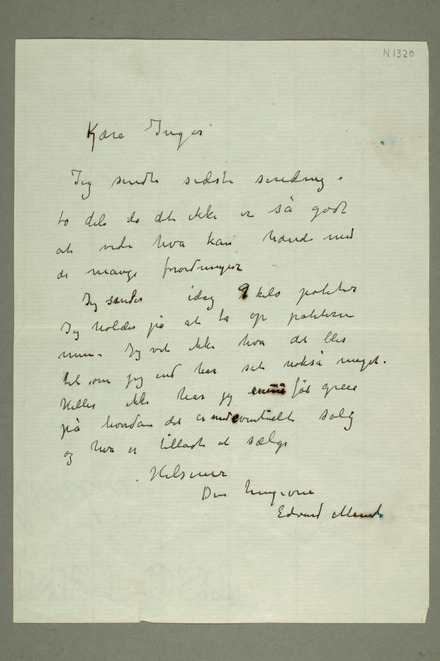 N 1320
Kære Inger
Jeg sendte sidste sending i
to dele da det ikke er så godt
at vide hva kan hænde med
de mange forordninger
Jeg sender idag 9 kilo poteter
Jeg holder på at ta op poteterne
mine. Jeg vet ikke hva det blir
til som jeg har sat også meget.
Heller ikke har jeg fåt greie
på hvordan det er med eventuelt salg
og hva er tilladt at sælge
Hilsener
Din hengivne
Edvard Munch